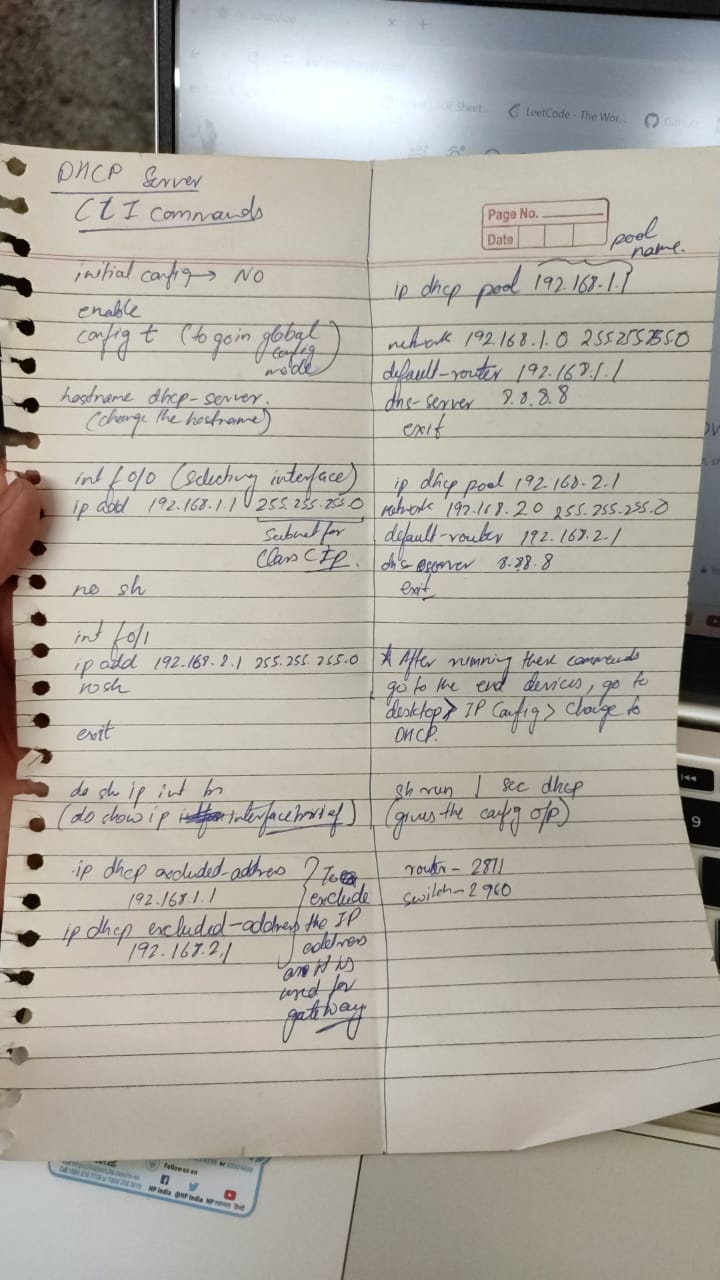 DHCP Server
CLI Commands
initial config → NO
enable
config t (to go in global
config
mode)
hostname dhcp-server.
(change the hostname)
int f0/0 (selecting interface)
ip add 192.168.1.1 255.255.255.0
Subnet for
Class C IP.
no sh
int f0/1
ip add 192.168.2.1 255.255.255.0
no sh
exit
do sh ip int br
(do show ip interface brief)
ip dhcp excluded-address
192.168.1.1
ip dhcp excluded-address
192.168.2.1
To
exclude
the IP
address
used for
gateway
Page No.
Date
pool
name.
ip dhcp pool 192.168.1.1
network 192.168.1.0 255.255.255.0
default-router 192.168.1.1
dns-server 8.8.8.8
exit
ip dhcp pool 192.168.2.1
network 192.168.2.0 255.255.255.0
default-router 192.168.2.1
dns-server 8.8.8.8
exit
* After running these commands
go to the end devices, go to
desktop > IP Config > Change to
DHCP.
sh run | sec dhcp
(gives the config o/p)
router - 2811
switch - 2960
WhatsApp
Sheet...
LeetCode - The Wor...
9
Follow us on
HP India @HP India HP